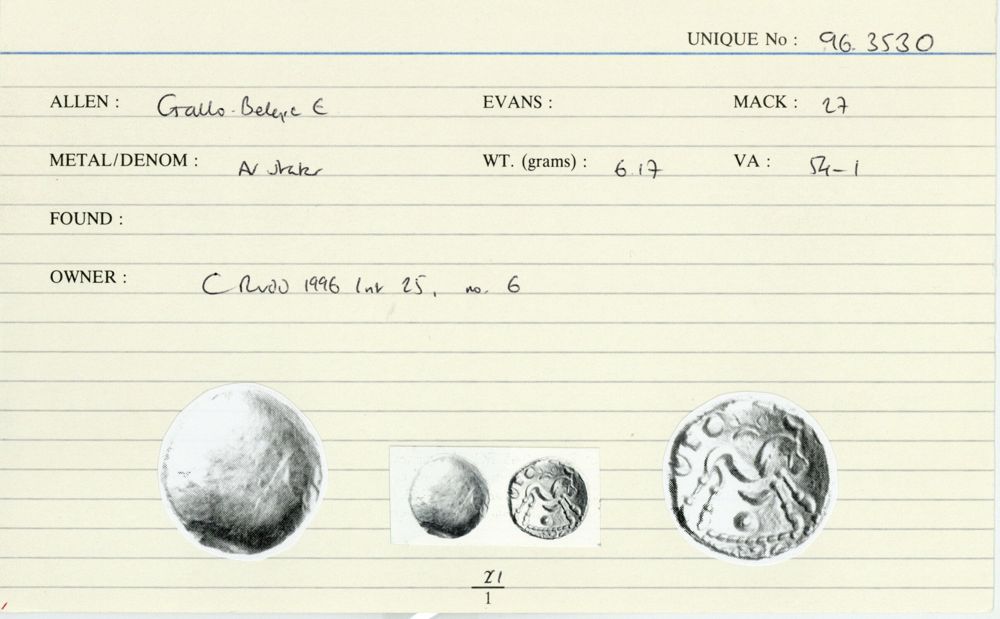 UNIQUE No : 96.3530
ALLEN : Gallo-Belgic E EVANS : MACK : 27
METAL/DENOM : AV stater WT. (grams) : 6.17 VA : 54-1
FOUND :
OWNER : C Rudd 1996 list 25, no. 6
1